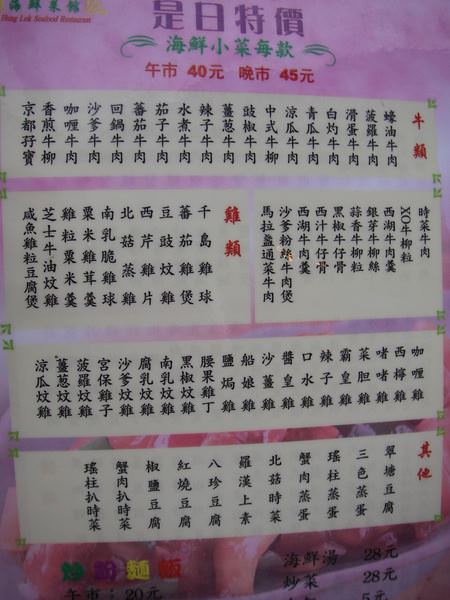 海鮮菜館
Hung Lok Seafood Restaurant
是日特價
海鮮小菜每款
午市 40元 晚市 45元
牛類
蠔油牛肉
菠蘿牛肉
滑蛋牛肉
白灼牛肉
青瓜牛肉
涼瓜牛肉
中式牛柳
豉椒牛肉
薑葱牛肉
辣子牛肉
水煮牛肉
茄子牛肉
蕃茄牛肉
回鍋牛肉
沙爹牛肉
咖喱牛肉
香煎牛柳
京都孖寶
時菜牛肉
XO牛柳粒
西湖牛肉羹
銀芽牛柳絲
蒜香牛柳粒
黑椒牛仔骨
西汁牛仔骨
西湖牛肉羹
沙爹粉絲牛肉煲
馬拉盞通菜牛肉
雞類
千島雞球
蕃茄雞煲
豆豉炆雞
西芹雞片
北菇蒸雞
南乳脆雞球
粟米雞茸羹
雞粒粟米羹
芝士牛油炆雞
咸魚雞粒豆腐煲
咖喱雞
西檸雞
啫啫雞
菜胆雞
霸皇雞
辣子雞
口水雞
醬皇雞
沙薑雞
船娘雞
鹽焗雞
腰果雞丁
黑椒炆雞
南乳炆雞
腐乳炆雞
沙爹炆雞
宮保雞子
菠蘿炆雞
薑葱炆雞
涼瓜炆雞
其他
翠塘豆腐
三色蒸蛋
瑤柱蒸蛋
蟹肉蒸蛋
北菇時菜
羅漢上素
八珍豆腐
紅燒豆腐
椒鹽豆腐
蟹肉扒時菜
瑤柱扒時菜
炒粉麵飯
午市：20元
海鮮湯 28元
炒菜 28元
5元